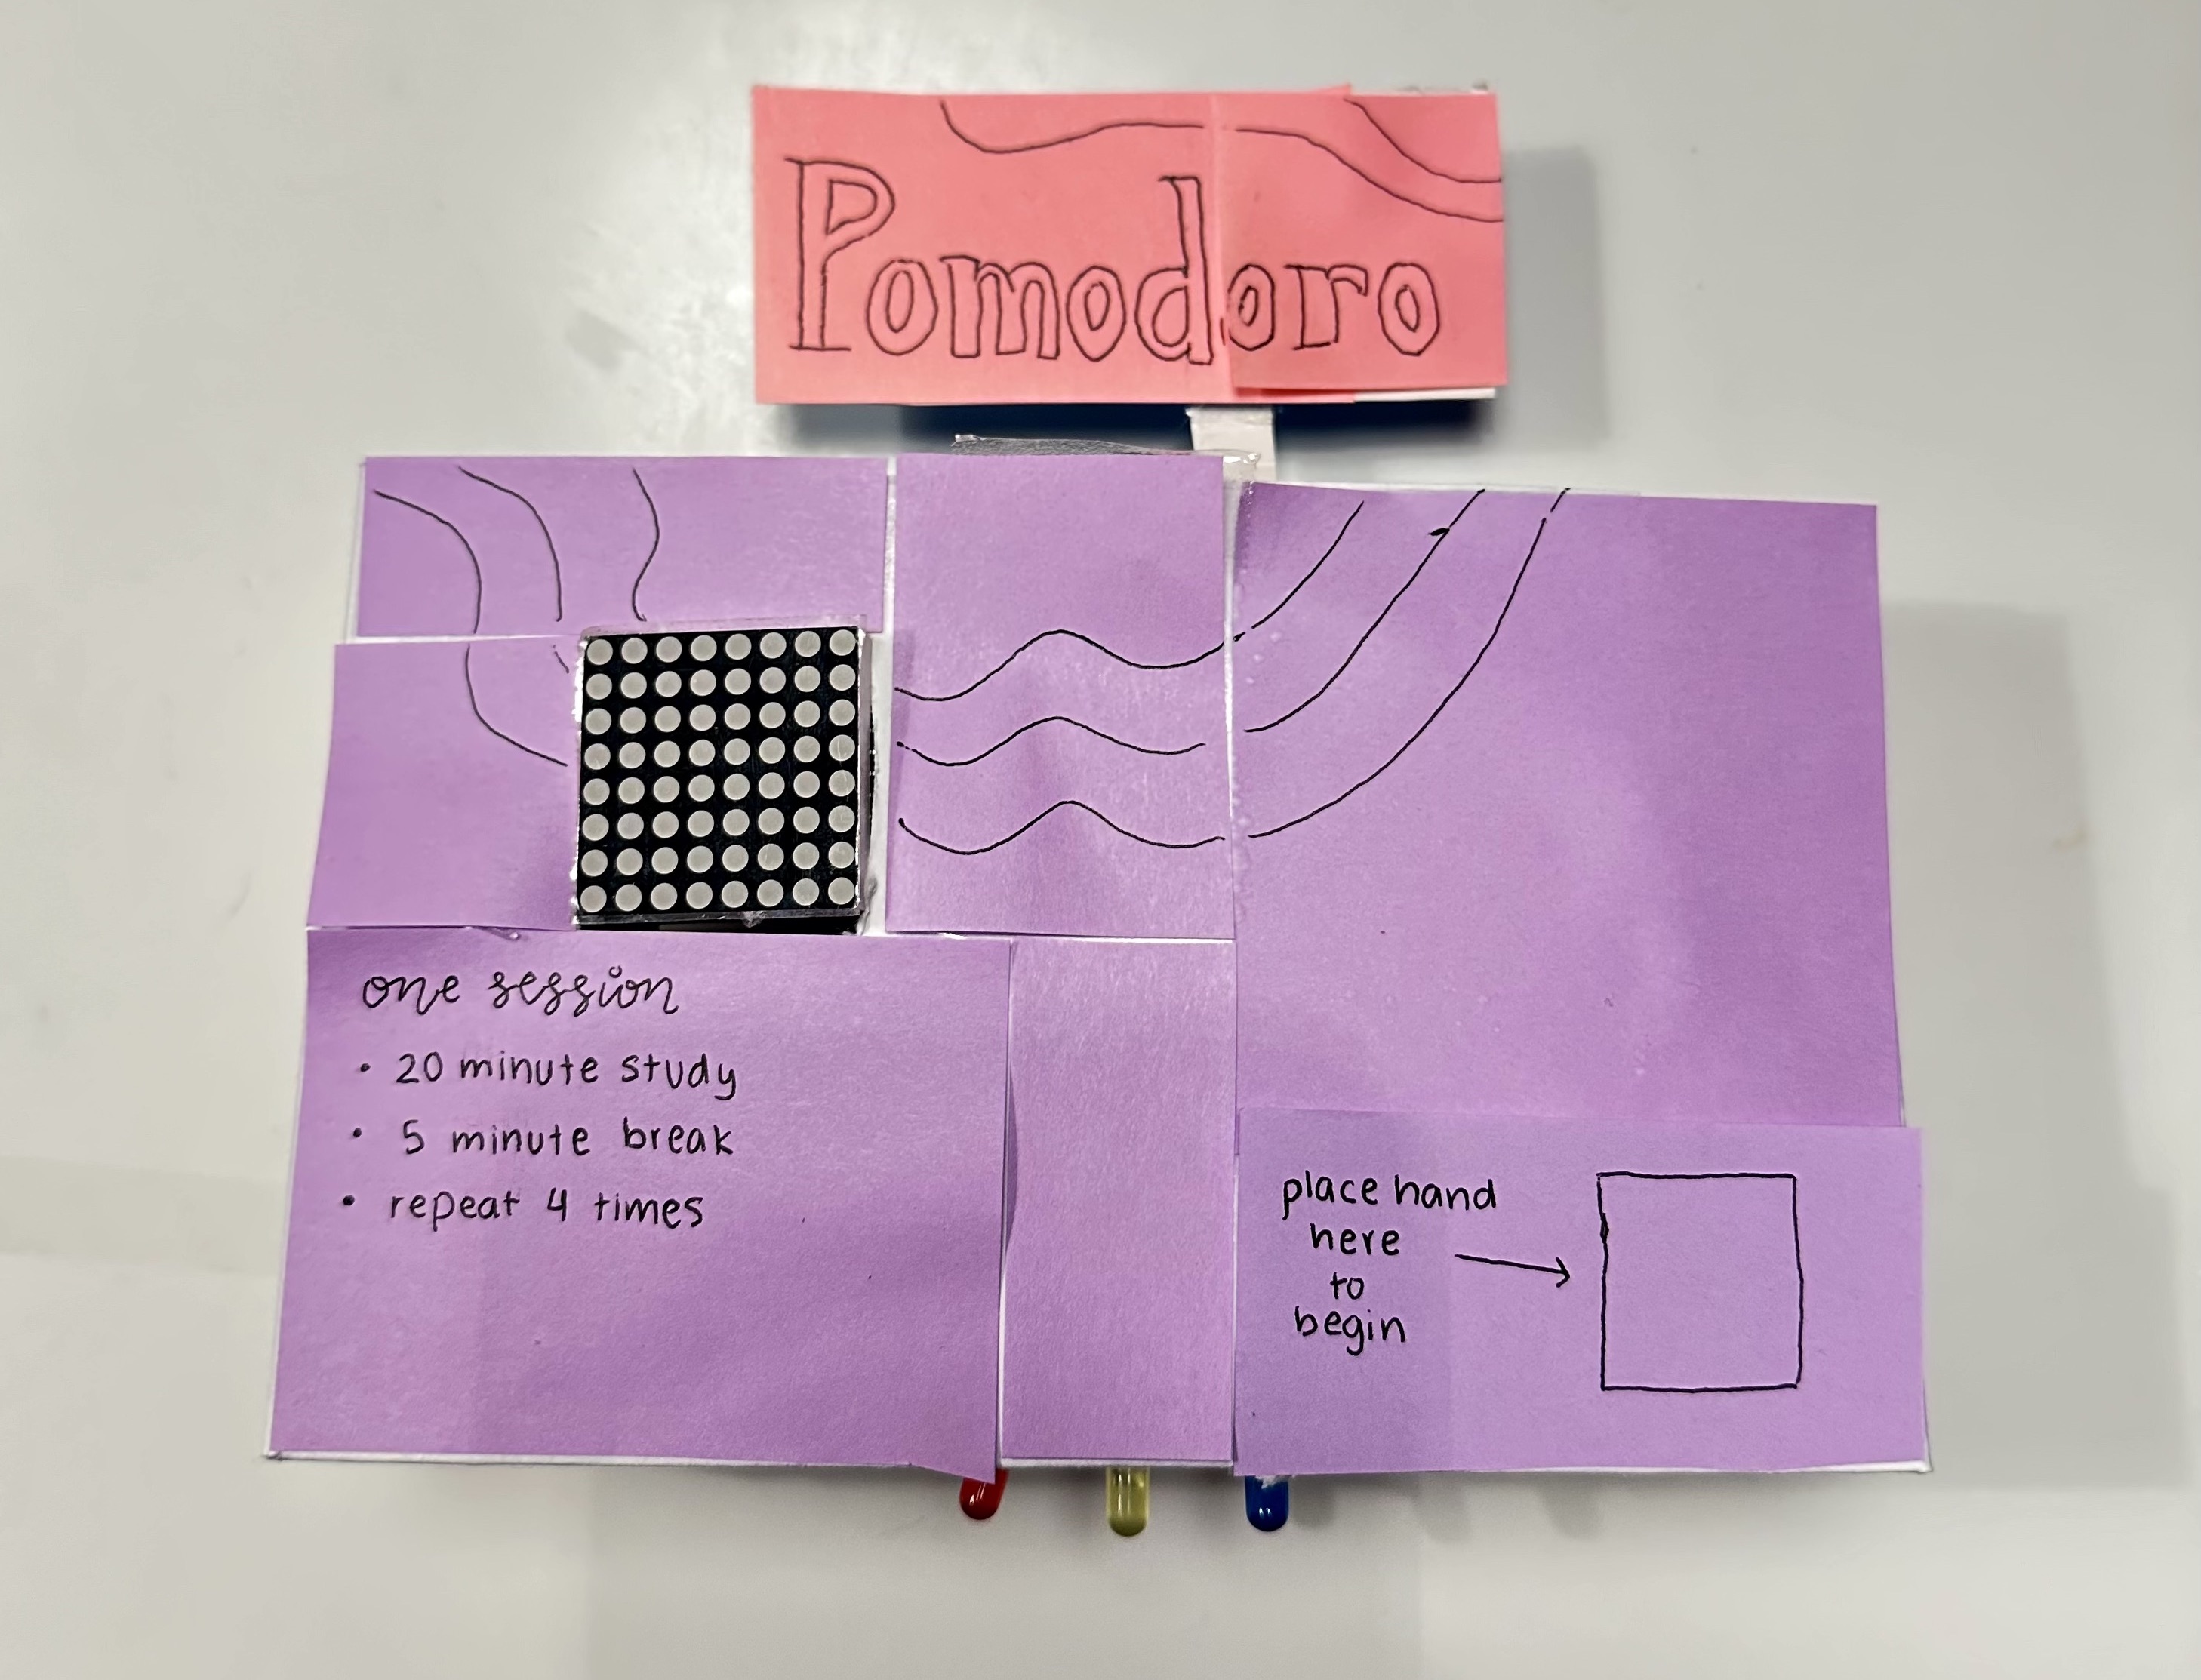 Pomodoro
one session
• 20 minute study
• 5 minute break
• repeat 4 times
place hand
here
to
begin